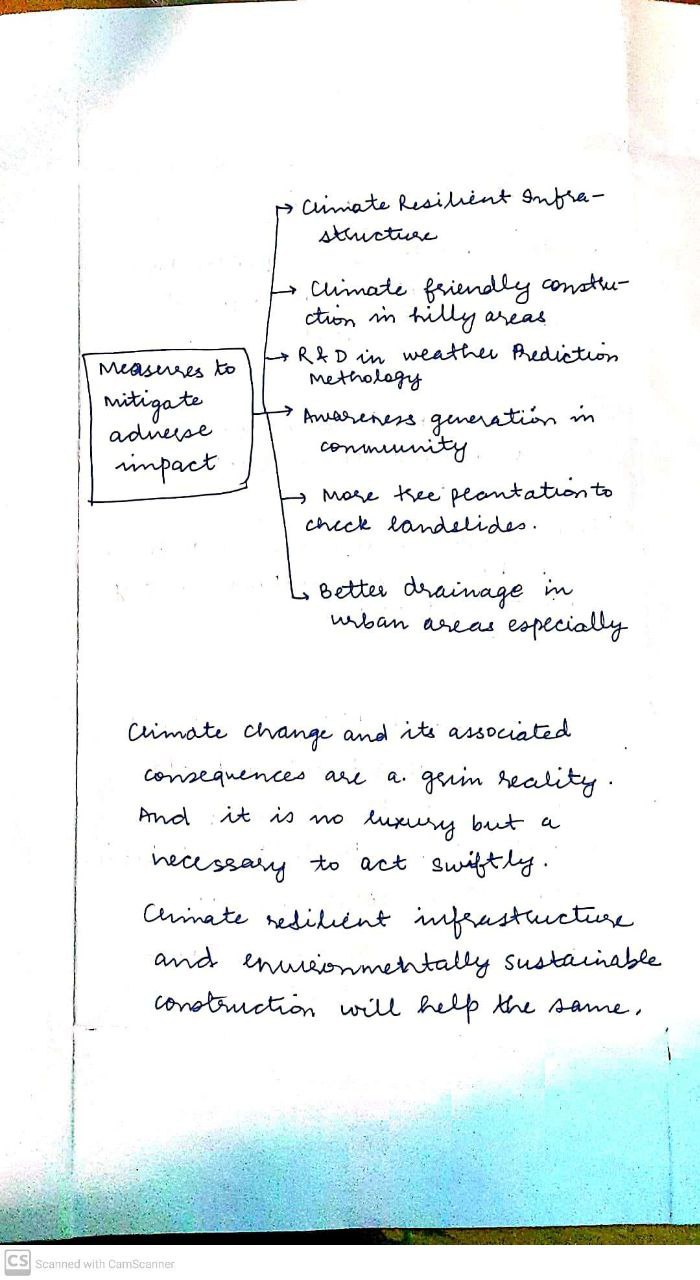 Climate Resilient Infra-
structure
Climate friendly constru-
ction in hilly areas
R&D in weather Prediction
Methology
Measures to
mitigate
adverse
impact
Awareness generation in
community
More tree plantation to
check landslides.
Better drainage in
urban areas especially
Climate change and its associated
consequences are a grim reality.
And it is no luxury but a
necessary to act swiftly.
Climate resilient infrastructure
and environmentally sustainable
construction will help the same.
CS Scanned with CamScanner